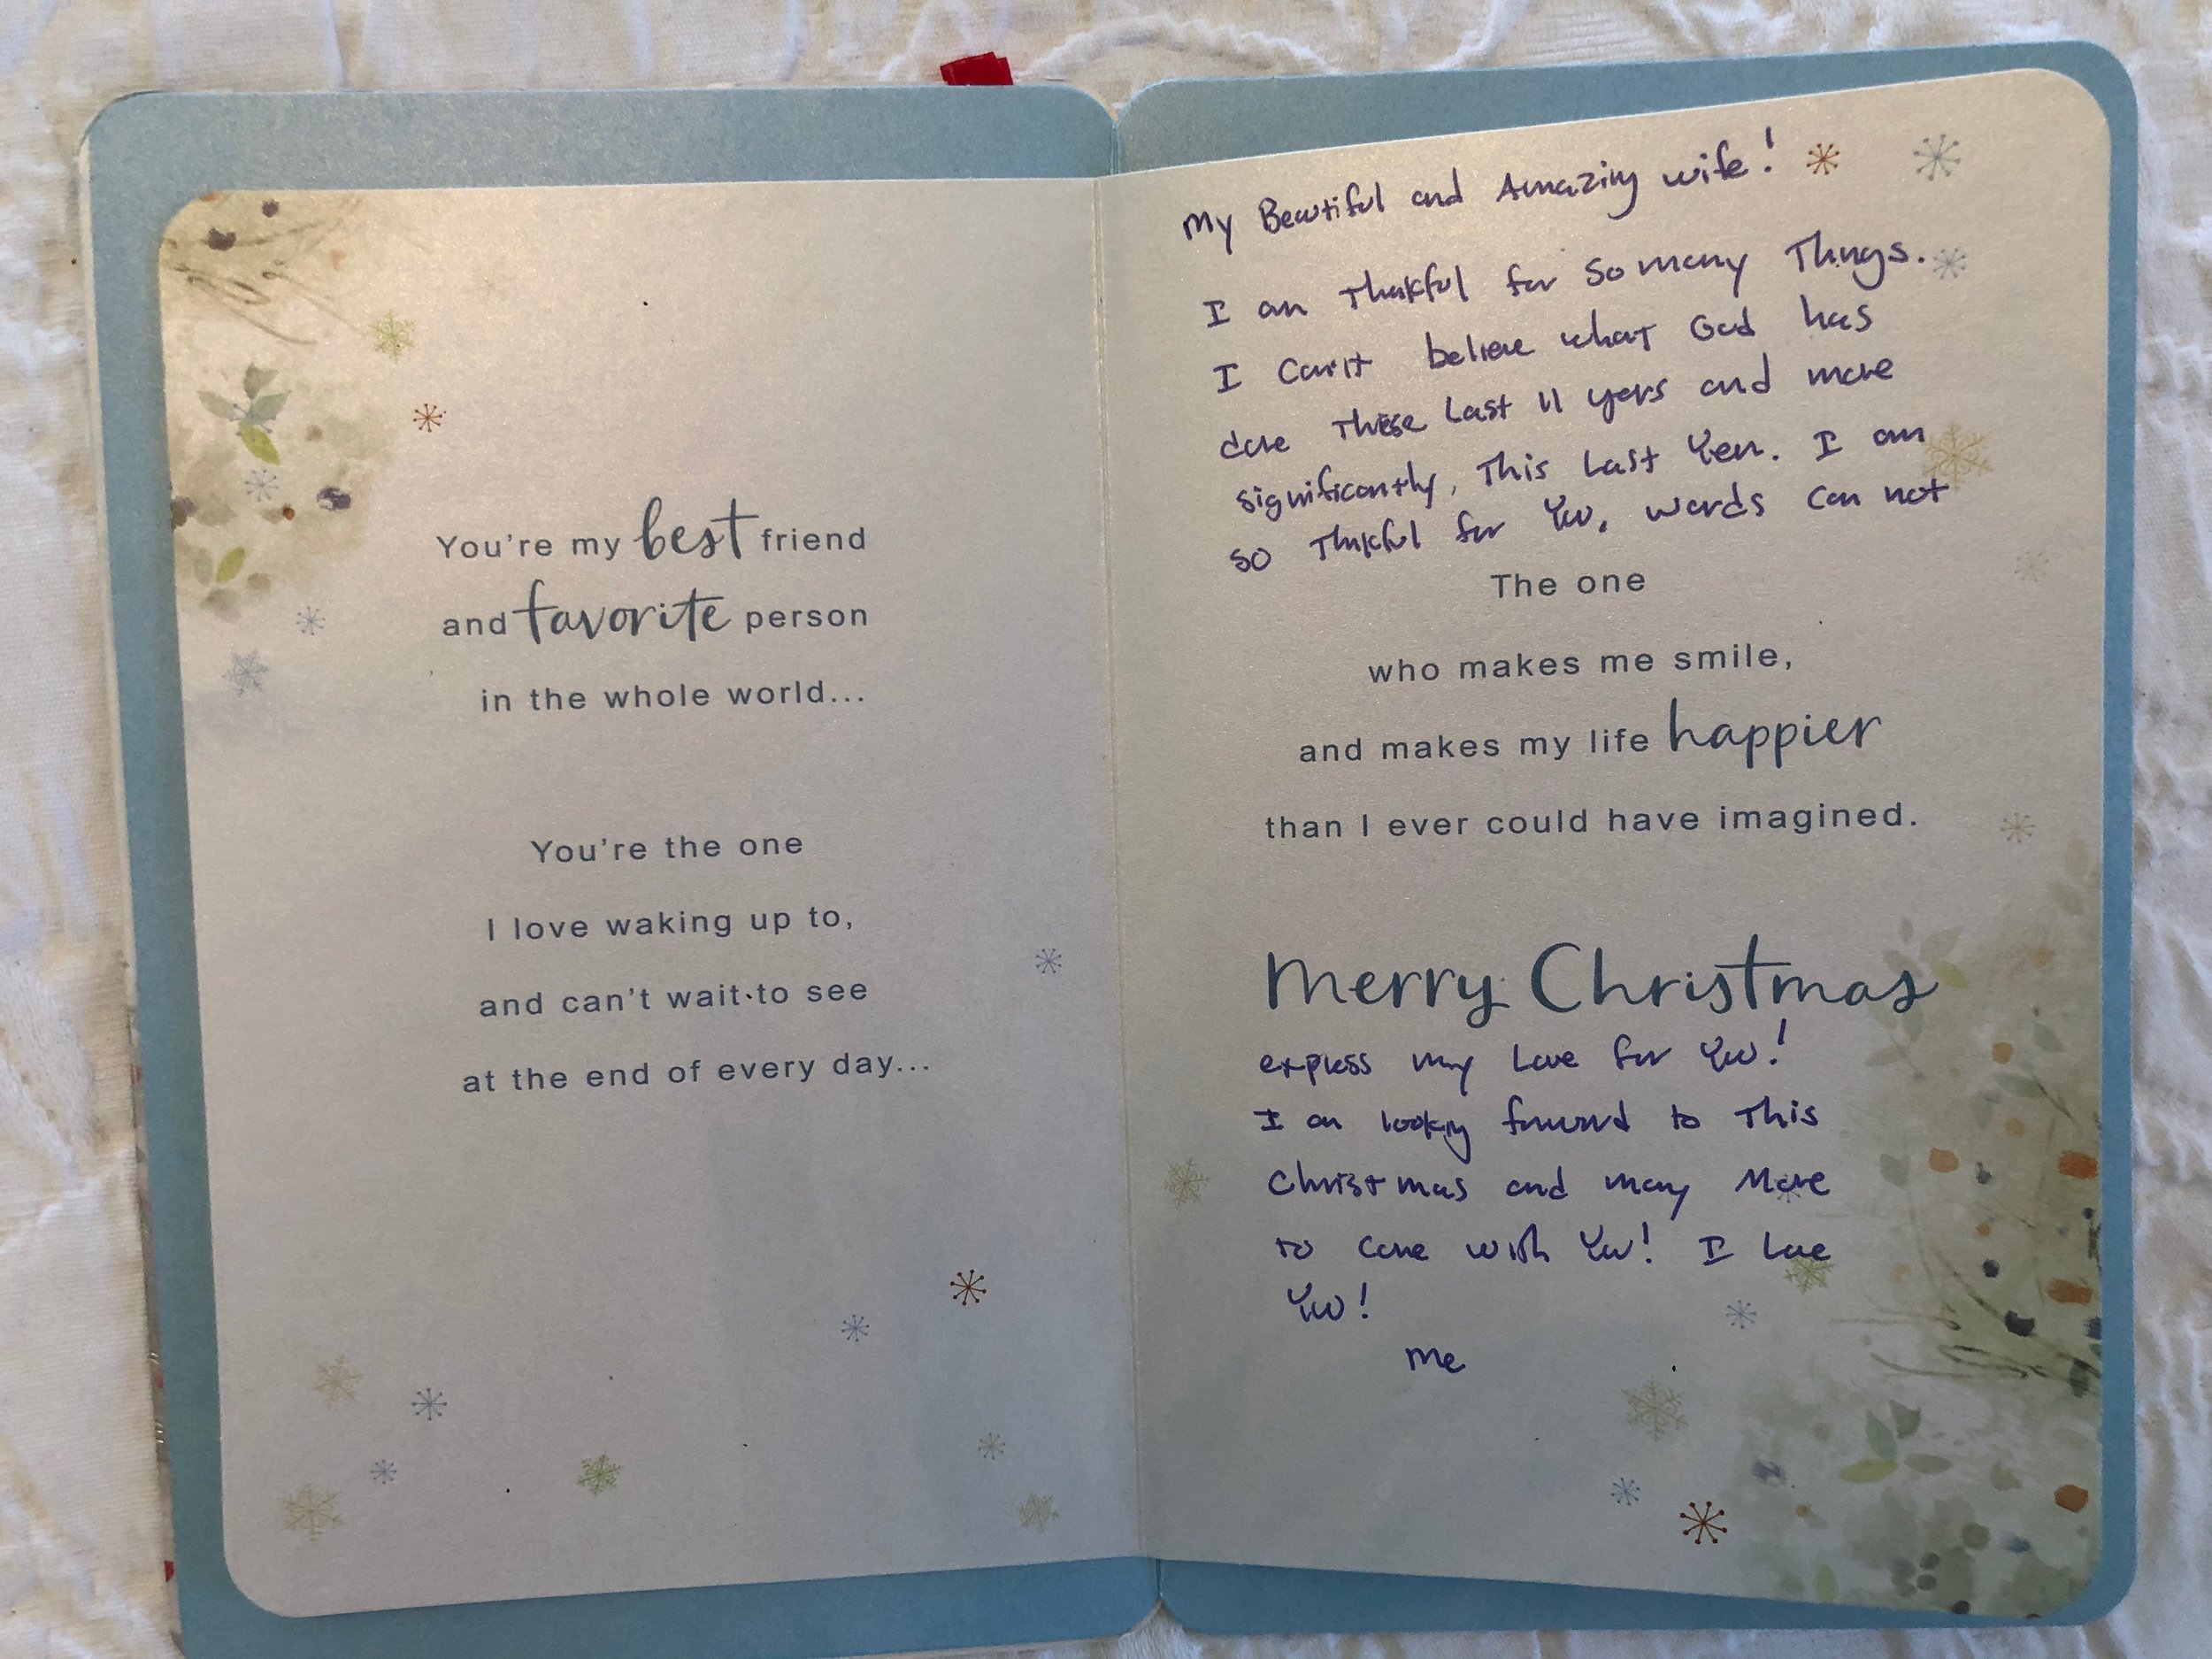 You're my best friend
and favorite person
in the whole world...
You're the one
I love waking up to,
and can't wait to see
at the end of every day...
My Beautiful and Amazing wife!
I am Thakful for So many Things.
I Can't believe what God has
done These Last 11 years and more
significantly, This Last Year. I am
so Thakful for You, words can not
The one
who makes me smile,
and makes my life happier
than I ever could have imagined.
Merry Christmas
express my Love for You!
I am looking forward to This
Christmas and many More
to come with You! I Love
You!
Me